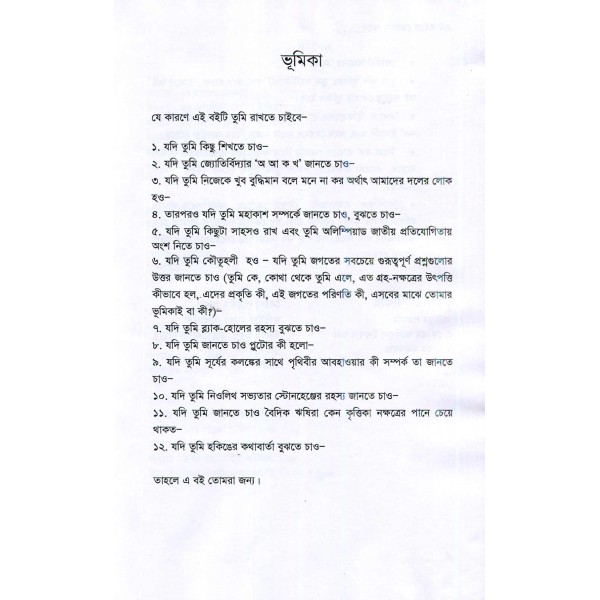 ভূমিকা
যে কারণে এই বইটি তুমি রাখতে চাইবে–
১. যদি তুমি কিছু শিখতে চাও–
২. যদি তুমি জ্যোতির্বিদ্যার ‘অ আ ক খ’ জানতে চাও–
৩. যদি তুমি নিজেকে খুব বুদ্ধিমান বলে মনে না কর অর্থাৎ আমাদের দলের লোক
হও–
৪. তারপরও যদি তুমি মহাকাশ সম্পর্কে জানতে চাও, বুঝতে চাও–
৫. যদি তুমি কিছুটা সাহসও রাখ এবং তুমি অলিম্পিয়াড জাতীয় প্রতিযোগিতায়
অংশ নিতে চাও–
৬. যদি তুমি কৌতূহলী হও – যদি তুমি জগতের সবচেয়ে গুরূত্বপূর্ণ প্রশ্নগুলোর
উত্তর জানতে চাও (তুমি কে, কোথা থেকে তুমি এলে, এত গ্রহ-নক্ষত্রের উৎপত্তি
কীভাবে হল, এদের প্রকৃতি কী, এই জগতের পরিণতি কী, এসবের মাঝে তোমার
ভূমিকাই বা কী?)–
৭. যদি তুমি ব্ল্যাক-হোলের রহস্য বুঝতে চাও–
৮. যদি তুমি জানতে চাও প্লুটোর কী হলো–
৯. যদি তুমি সূর্যের কলঙ্কের সাথে পৃথিবীর আবহাওয়ার কী সম্পর্ক তা জানতে
চাও–
১০. যদি তুমি নিওলিথ সভ্যতার স্টোনহেঞ্জের রহস্য জানতে চাও–
১১. যদি তুমি জানতে চাও বৈদিক ঋষিরা কেন কৃত্তিকা নক্ষত্রের পানে চেয়ে
থাকত–
১২. যদি তুমি হকিঙের কথাবার্তা বুঝতে চাও–
তাহলে এ বই তোমরা জন্য।